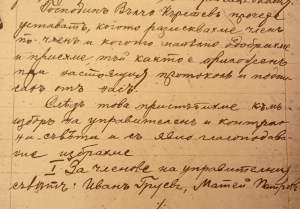 Господинъ Вълчо Кърджиевъ прочете
устава, когото разисквахме членъ
по членъ и когото напълно одобрихме
и приехме, тъй както е приложенъ
при настоящия протоколъ и подпи-
санъ отъ насъ.
Следъ това пристѫпихме къмъ
изборъ на управителенъ и контрол-
ни съвети и съ явно гласоподава-
ние избрахме
I За членове на управителния
съветъ: Иванъ Груевъ, Матей Петровъ